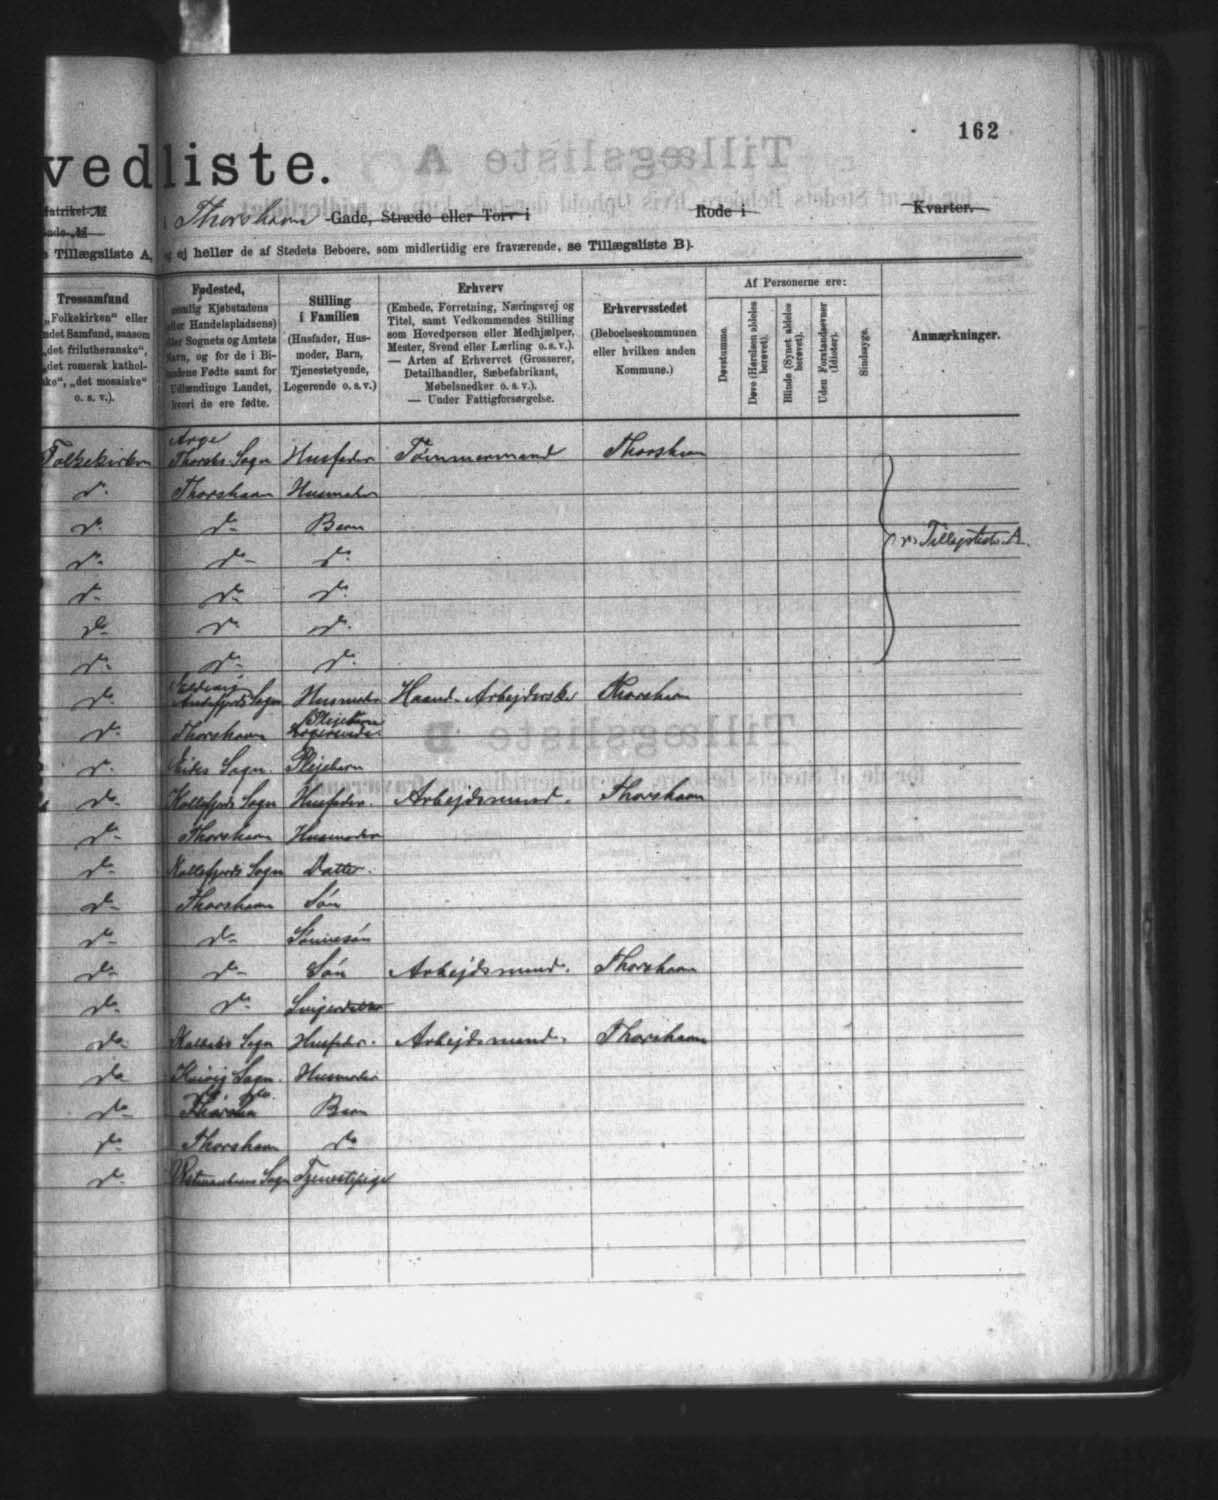 162
vedliste.
Matrikel-№
Thorshavn -Gade, Stræde eller Torv i Rode i Kvarter.
Tillægsliste A, og ej heller de af Stedets Beboere, som midlertidig ere fraværende, se Tillægsliste B).
Trossamfund
„Folkekirken“ eller
andet Samfund, saasom
„det frilutheranske“,
„det romersk kathol-
ske“, „det mosaiske“
o. s. v.).
Fødested,
nemlig Kjøbstadens
(eller Handelspladsens)
eller Sognets og Amtets
Navn, og for de i Bi-
landene Fødte samt for
Udlændinge Landet,
hvori de ere fødte.
Stilling
i Familien
(Husfader, Hus-
moder, Barn,
Tjenestetyende,
Logerende o. s. v.)
Erhverv
(Embede, Forretning, Næringsvej og
Titel, samt Vedkommendes Stilling
som Hovedperson eller Medhjælper,
Mester, Svend eller Lærling o. s. v.).
— Arten af Erhvervet (Grosserer,
Detailhandler, Sæbefabrikant,
Møbelsnedker o. s. v.).
— Under Fattigforsørgelse.
Erhvervsstedet
(Beboelseskommunen
eller hvilken anden
Kommune.)
Af Personerne ere:
Døvstumme.
Døve (Hørelsen aldeles
berøvet).
Blinde (Synet aldeles
berøvet).
Uden Forstandsevner
(Idioter).
Sindssyge.
Anmærkninger.
Folkekirken Thorshs Sogn Husfader Tømmermand Thorshavn
do. Thorshavn Husmoder
do. do. Barn
do. do. do.
do. do. do.
do. do. do.
do. do. do.
do. Sogn Husmoder Haand-Arbejderske Thorshavn
do. Thorshavn Plejebarn Logerende
do. Eides Sogn. Plejebarn
do. Kollefjords Sogn Husfader. Arbejdsmand. Thorshavn
do. Thorshavn Husmoder
do. Kollefjords Sogn Datter.
do. Thorshavn Søn
do. do. Sønnesøn
do. do. Søn Arbejdsmand. Thorshavn
do. do. Svigerdatter
do. Kaldbaks Sogn Husfader. Arbejdsmand. Thorshavn
do. Sogn. Husmoder
do. do. do. Barn
do. Thorshavn do.
do. Vestmanhavns Sogn Tjenestepige